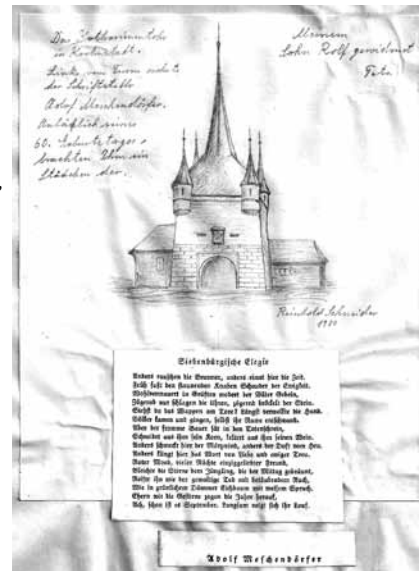 Das Katharinentor
in Kronstadt.
Links vom Turm wohnte
der Schriftsteller
Adolf Meschendörfer.
Anläßlich seines
60. Geburtstages
brachten Ihm ein
Ständchen dar.
Meinem
Sohn Rolf gewidmet
Reinhold Schneider
Siebenbürgische Elegie
Anders rauschen die Brunnen, anders rinnt hier die Zeit.
Früh faßt den staunenden Knaben Schauder der Ewigkeit.
Wohlvermauert in Grüften modert der Väter Gebein,
Zögernd nur schlagen die Uhren, zögernd bröckelt der Stein.
Siehst du das Wappen am Tore? Längst verwelkte die Hand.
Völker kamen und gingen, selbst ihr Name entschwand.
Aber der fromme Bauer sät in den Totenschrein,
Schneidet aus ihm sein Korn, keltert aus ihm seinen Wein.
Anders schmeckt hier der Märzwind, anders der Duft vom Heu,
Anders klingt hier das Wort von Liebe und ewiger Treu.
Roter Mond, vieler Nächte einziggeliebter Freund,
Bleichte die Stirne dem Jüngling, die der Mittag gebräunt,
Reifte ihn wie der gewaltige Tod mit betäubendem Ruch,
Wie in grünlichem Dämmer Eichbaum mit weisem Spruch.
Ehern wie die Gestirne zogen die Jahre herauf,
Ach, schon ist es September. Langsam neigt sich ihr Lauf.
Adolf Meschendörfer